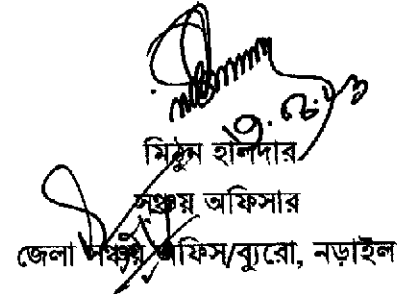 মিঠুন হালদার
সঞ্চয় অফিসার
জেলা সঞ্চয় অফিস/ব্যুরো, নড়াইল